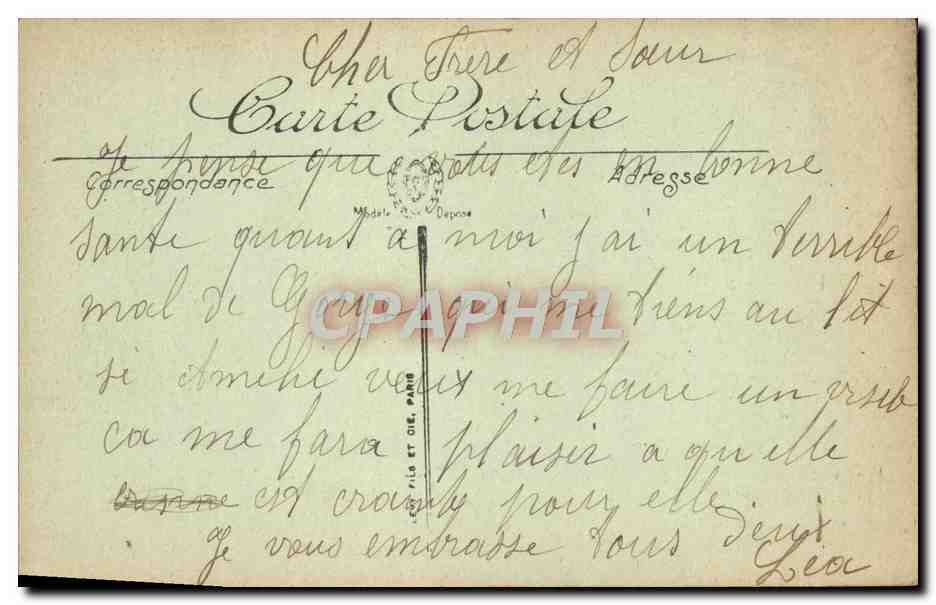 Cher Frere et Soeur
Carte Postale
Je pense que vous etes en bonne
Correspondance
Adresse
Modèle Déposé
sante quant a moi j'ai un terrible
mal de Gorge qui me tiens au lit
CPAPHIL
si veux me faire un visite
ca me fara plaisir a quelle
est crainte pour elle
LEVY FILS ET CIE, PARIS
Je vous embrasse tous deux
Léa